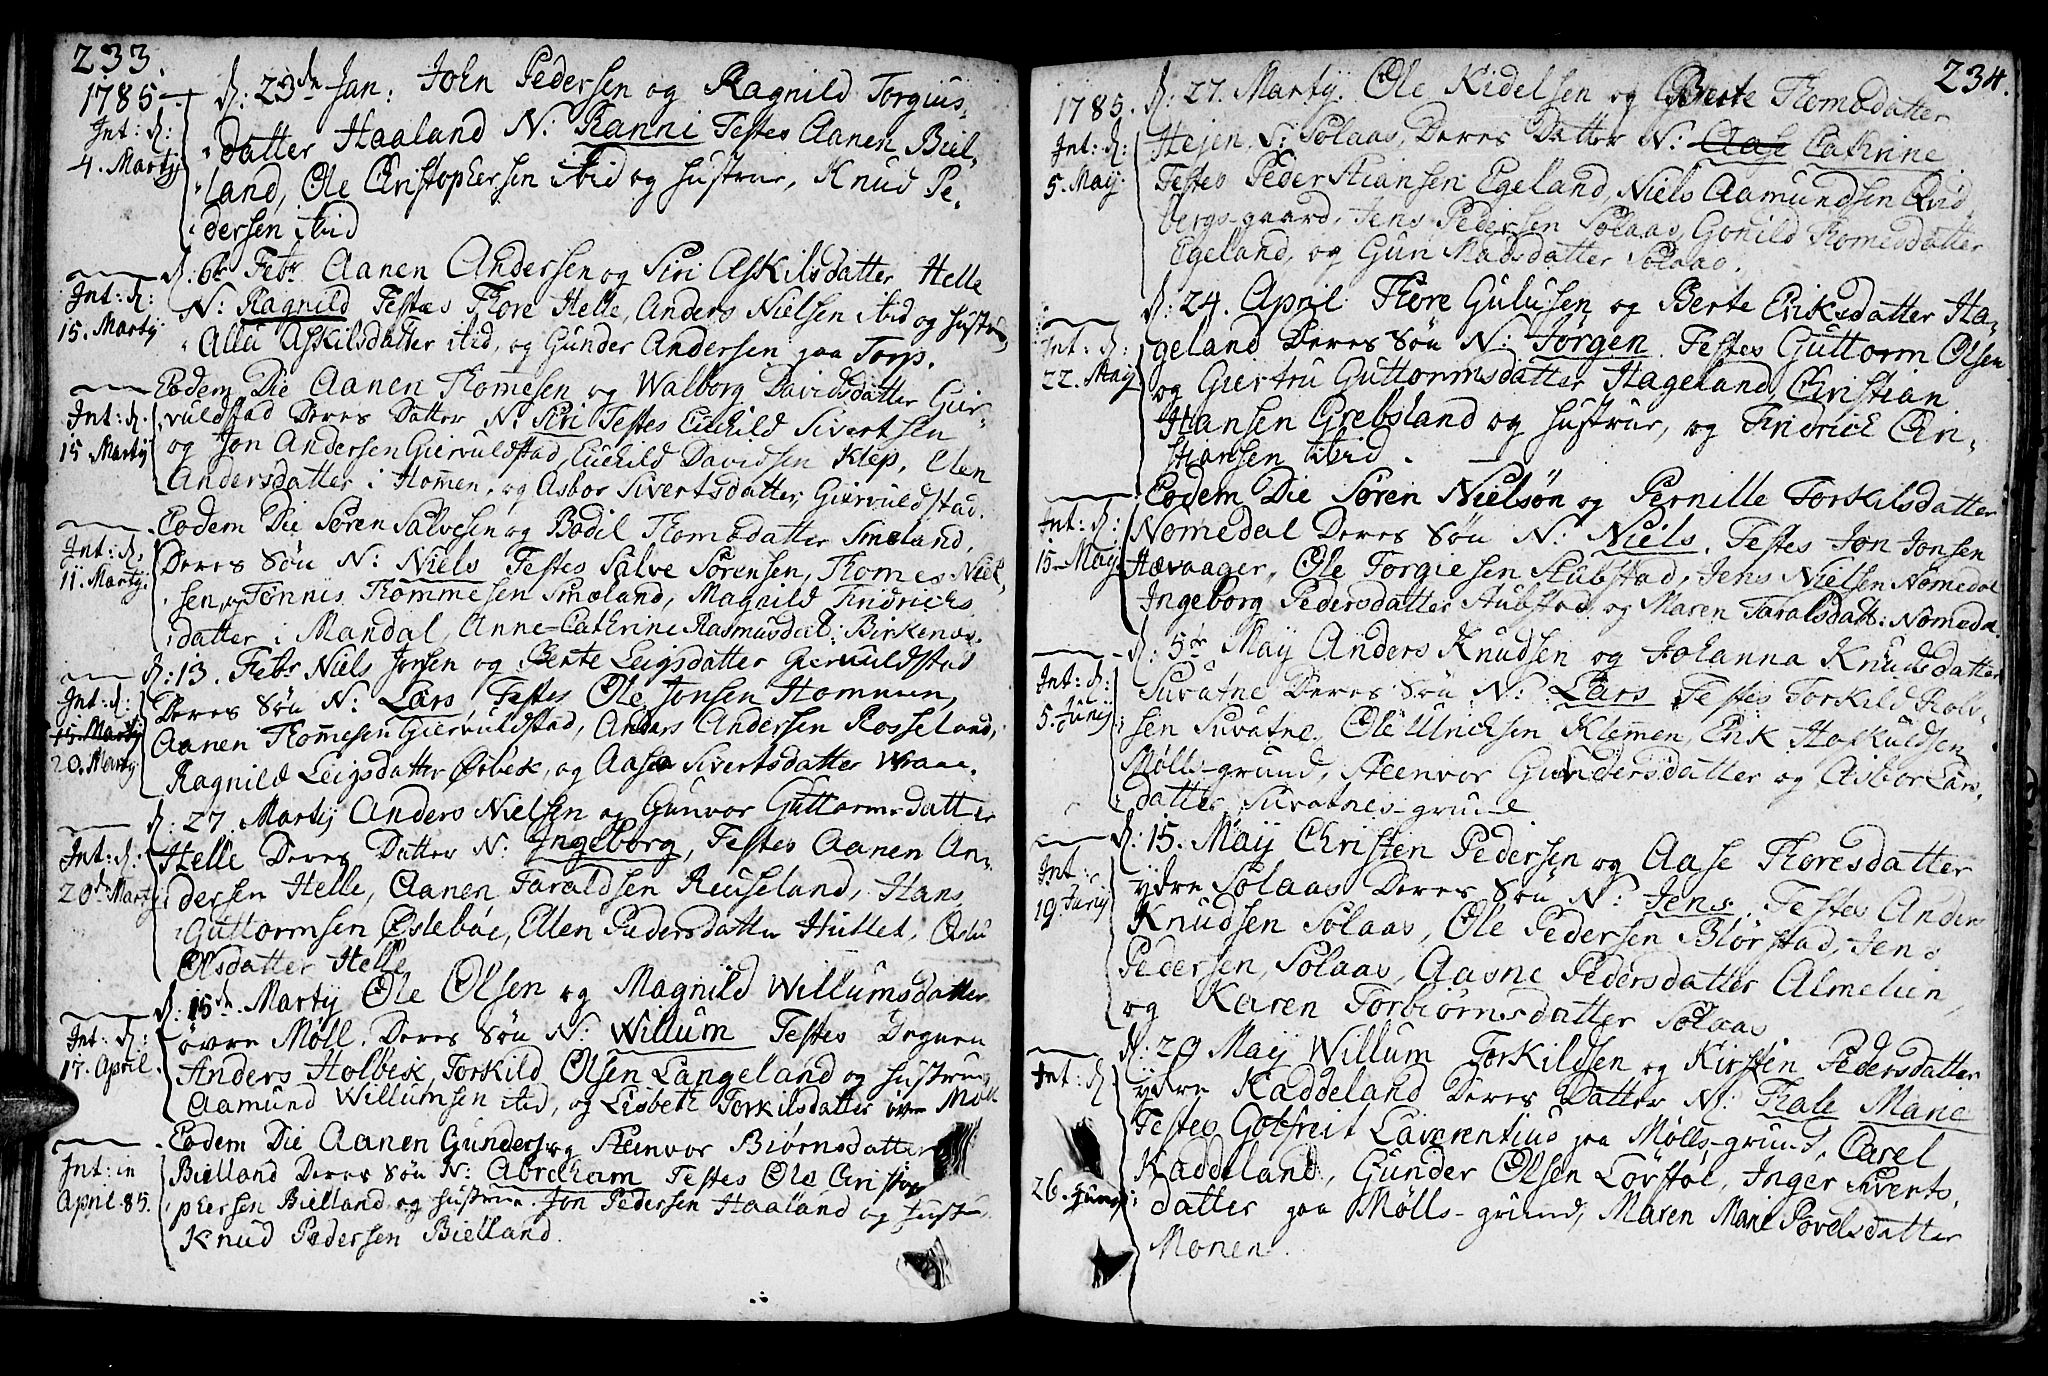 233.
1785
Int: d:
4. Martÿ
d: 23de Jan: John Pedersen og Ragnild Torgius-
datter Haaland N: Ranni Testes Aanen Biel-
land, Ole Christophersen ibid og Hustrue, Knud Pe-
dersen ibid
Int: d:
15. Martÿ.
d: 6te Febr Aanen Andersen og Siri Askilsdatter Helle
N: Ragnild Testes Thore Helle, Anders Nielsen ibid og Hustru
Allu Askilsdatter ibid, og Gunder Andersen paa Torp.
Int: d.
15 Martÿ
Eodem Die Aanen Thomesen og Walborg Davidsdatter Gier-
vuldstad Deres Datter N: Siri Testes Sivertsen
og Jon Andersen Giervuldstad, Davidsen Klep, Elen
Andersdatter i Homen, og Asbor Sivertsdatter Giervuldstad.
Int: d,
11. Martÿ.
Eodem Die Søren Salvesen og Bodil Thomsdatter Smeland,
Deres Søn N: Niels Testes Salve Sørensen, Thomes Niel-
sen, og Tønnis Thommesen Smeland, Magnild Fridrichs
datter i Mandal, Anne Cathrine Rasmusdat: Birkenæs.
Int: d:
15. Martÿ
20. Martÿ
d: 13. Febr Niels Jonsen og Berte Leigsdatter Giervuldstad
Deres Søn N: Lars, Testes Ole Jonsen Hommen,
Aanen Thomesen Giervuldstad, Anders Andersen Rosseland,
Ragnild Leigsdatter Ørbek, og Aase Sivertsdatter Wraae.
Int: d:
20de Martÿ
d: 27. Martÿ Anders Nielsen og Gunvor Guttormsdatter
Helle Deres Datter N: Ingeborg, Testes Aanen An-
dersen Helle, Aanen Taraldsen Reuseland, Hans
Guttormsen Øslebøe, Ellen Pedersdatter Hullet, Aslu
Olsdatter Helle
Int: d:
17. April.
d: 15de Martÿ Ole Olsen og Magnild Willumsdatter
øvre Møll. Deres Søn N: Willum Testes Degnen
Anders Holbek, Torkild Olsen Langeland og Hustrue
Aamund Willumsen ibid, og Lisbeth Torkilsdatter øvre Møll
Int: in
April 85.
Eodem Die Aanen Gunders. og Steenvor Biørnsdatter
Bielland Deres Søn N: Abraham Testes Ole Christo-
phersen Bielland og Hustrue Jon Pedersen Haaland og Hustru
Knud Pedersen Bielland.
234.
1785.
Int: d:
5. Maÿ.
d: 27. Martÿ. Ole Kidelsen og Berte Thomsdatter
Hejen, N: Solaas, Deres Datter N: Aase Cathrine
Testes Peder Stiansen Egeland, Niels Aamundsen Qvid
bergs-gaard, Jens Pedersen Solaas, Gonild Thomesdatter
Egeland, og Gun Madsdatter Solaas.
Int: d:
22. Maÿ
d: 24. April Thore Gulusen og Berte Eriksdatter Ha-
geland Deres Søn N: Jørgen. Testes Guttorm Olsen
og Giertru Guttormsdatter Hageland, Christian
Hansen Grebsland og Hustrue, og Findrich Chri-
stiansen ibid.
Int: d:
15 Maÿ
Eodem Die Søren Nielsøn og Pernille Torkilsdatter
Nomedal Deres Søn N: Niels. Testes Jon Jonsen
Hævaager, Ole Torgiesen Stubstad, Jens Nielsen Nomedal
Ingeborg Pedersdatter Stubstad, og Maren Taralsdatt: Nomedal
Int: d:
5. Junÿ
d: 5te Maÿ Anders Knudsen og Johanna Knudsdatter
Suvatne Deres Søn N: Lars Testes Torkild Rolv-
sen Suvatne, Ole Ulrichsen Klemen, Erik Hoskuldsen
Mølls-grund, Steenvor Gundersdatter og Asbor Lars-
datter Suvatnes-grund
Int:
19. Junÿ
d: 15. Maÿ Christen Pedersen og Aase Thoresdatter
ydre Solaas Deres Søn N: Jens. Testes Anders
Knudsen Solaas, Ole Pedersen Blørstad, Jens
Pedersen, Solaas, Aasne Pedersdatter Almelien,
og Karen Torbiørnsdatter Solaas
Int: d
26. Junÿ:
d: 29 Maÿ Willum Torkildsen og Kirsten Pedersdatter
ydre Kaddeland Deres Datter N: Thale Marie
Testes Gotfreit Laverentius paa Mølls-grund, Carel
Kaddeland, Gunder Olsen Lørstøl, Inger Sivents
datter paa Mølls-grund, Maren Marie Povelsdatter
Monen.